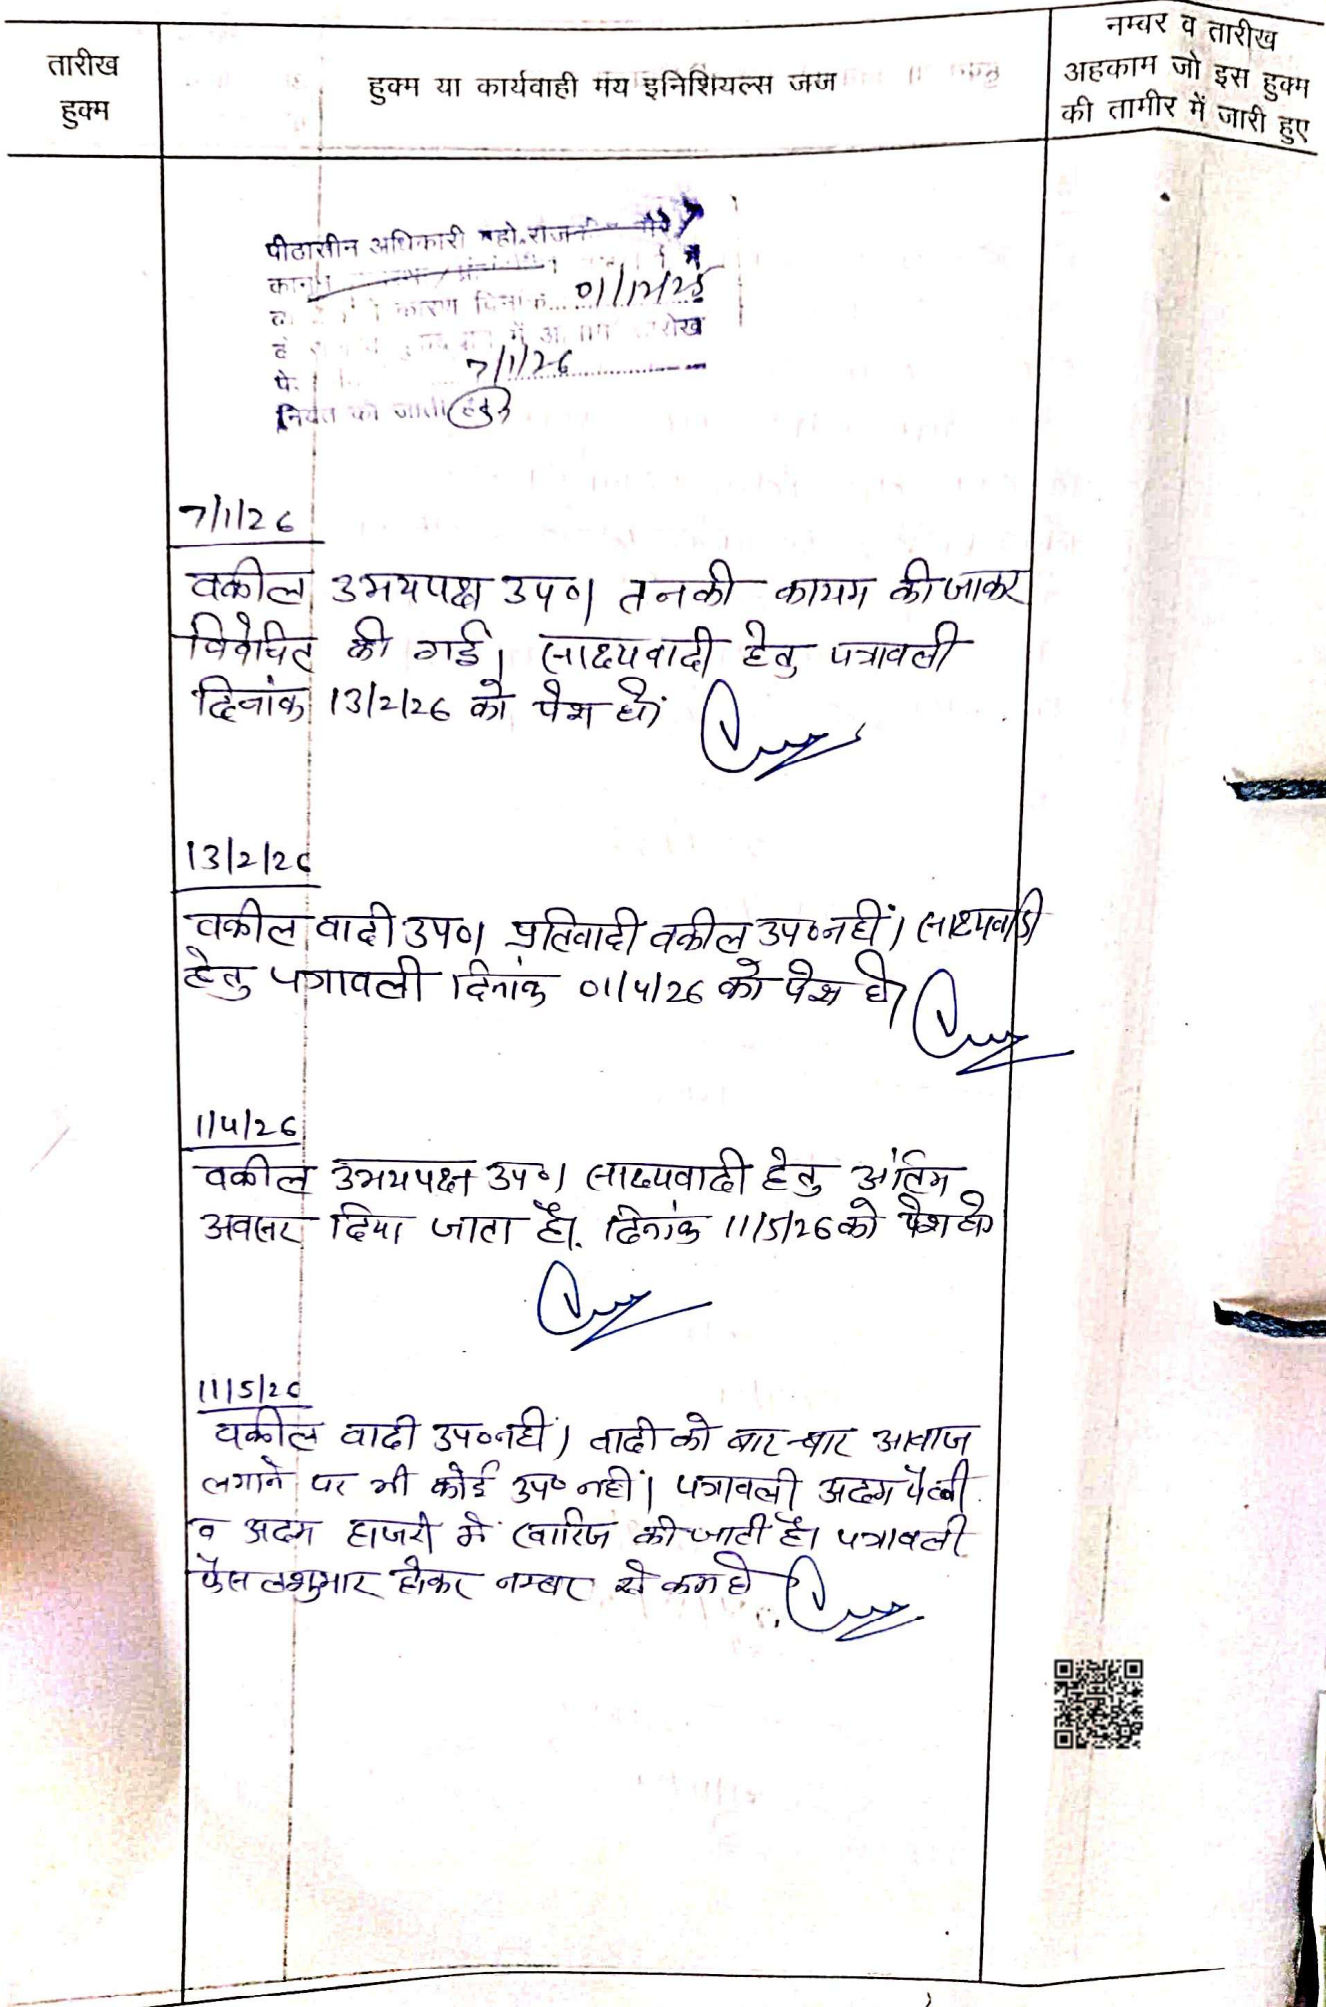 तारीख
हुक्म
हुक्म या कार्यवाही मय इनिशियल्स जज
नम्बर व तारीख
अहकाम जो इस हुक्म
की तामीर में जारी हुए
पीठासीन अधिकारी महो.
कारण दिनांक 01/12/25
में तारीख
7/1/26
नियत की जाती है
7/1/26
वकील उभयपक्ष उप०। तनकी कायम की जाकर
विवेचित की गई। साक्ष्यवादी हेतु पत्रावली
दिनांक 13/2/26 को पेश हो
13/2/26
वकील वादी उप०। प्रतिवादी वकील उप०नहीं। साक्ष्यवादी
हेतु पत्रावली दिनांक 01/4/26 को पेश हो
1/4/26
वकील उभयपक्ष उप०। साक्ष्यवादी हेतु अंतिम
अवसर दिया जाता है। दिनांक 11/5/26 को पेश हो
11/5/26
वकील वादी उप०नहीं। वादी को बार-बार आवाज
लगाने पर भी कोई उप० नहीं। पत्रावली अदम पैरवी
व अदम हाजरी में खारिज की जाती है। पत्रावली
फैसलशुमार होकर नम्बर से कम हो